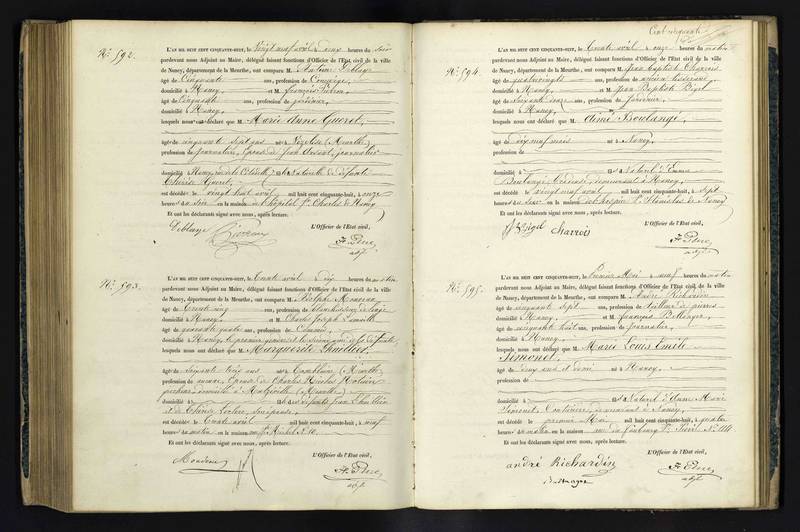 N.º 592.
L'AN MIL HUIT CENT CINQUANTE-HUIT, le Vingt neuf avril à deux heures du soir
pardevant nous Adjoint au Maire, délégué faisant fonctions d'Officier de l'Etat civil de la ville
de Nancy, département de la Meurthe, ont comparu M. Antoine Deblaye
âgé de Cinquante ans, profession de Concierge,
domicilié à Nancy, et M. françois
âgé de Cinquante ans, profession de
domicilié à Nancy,
lesquels nous ont déclaré que M. Marie Anne Guerel,
âgé de cinquante sept ans né à Vezelise (Meurthe)
profession de journalière, Epouse de Jean journalier
domicilié à Nancy, fils Naturelle de défunte
Thérèse Guerel,
est décédé le vingt huit avril mil huit cent cinquante-huit, à onze
heures du soir en la maison de l'hôpital St Charles de Nancy
Et ont les déclarants signé avec nous, après lecture.
L'Officier de l'Etat civil,
Deblaye
adjt
N.º 593.
L'AN MIL HUIT CENT CINQUANTE-HUIT, le trente avril à dix heures du matin
pardevant nous Adjoint au Maire, délégué faisant fonctions d'Officier de l'Etat civil de la ville
de Nancy, département de la Meurthe, ont comparu M. Adolphe
âgé de trente cinq ans, profession de
domicilié à Nancy, et M. Charles Joseph
âgé de quarante quatre ans, profession de Commis,
domicilié à Nancy, le premier gendre et le second ami de la défunte,
lesquels nous ont déclaré que M. Marguerite Thuillier,
âgé de soixante trois ans né à (Meurthe)
profession de Epouse de Charles Nicolas
domicilié à Malzéville (Meurthe)
domicilié à fils des défunts Jean Thuillier
et de Thérèse son épouse,
est décédé le trente avril mil huit cent cinquante-huit, à neuf
heures du matin en la maison rue St Michel N.º 10.
Et ont les déclarants signé avec nous, après lecture.
L'Officier de l'Etat civil,
adjt
Cent cinquante
N.º 594.
L'AN MIL HUIT CENT CINQUANTE-HUIT, le trente avril à onze heures du matin
pardevant nous Adjoint au Maire, délégué faisant fonctions d'Officier de l'Etat civil de la ville
de Nancy, département de la Meurthe, ont comparu M. Jean Baptiste Charrois
âgé de quatrevingts ans, profession de ancien
domicilié à Nancy, et M. Jean Baptiste Bigel
âgé de soixante onze ans, profession de
domicilié à Nancy,
lesquels nous ont déclaré que M. Aimé Boulangé,
âgé de Dix neuf mois né à Nancy,
profession de
domicilié à fils Naturel d'Emma
Boulangé, demeurant à Nancy,
est décédé le vingt neuf avril mil huit cent cinquante-huit, à sept
heures du soir en la maison de l'hospice St Stanislas de Nancy
Et ont les déclarants signé avec nous, après lecture.
L'Officier de l'Etat civil,
Bigel Charrois
adjt
N.º 595.
L'AN MIL HUIT CENT CINQUANTE-HUIT, le Premier Mai à neuf heures du matin
pardevant nous Adjoint au Maire, délégué faisant fonctions d'Officier de l'Etat civil de la ville
de Nancy, département de la Meurthe, ont comparu M. André Richardin
âgé de cinquante sept ans, profession de Tailleur de pierres
domicilié à Nancy, et M. françois
âgé de cinquante huit ans, profession de journalier,
domicilié à Nancy,
lesquels nous ont déclaré que M. Marie Louis Emile
Simonet,
âgé de deux ans et demi né à Nancy,
profession de
domicilié à fils Naturel d'Anne Marie
Simonet, Couturière, demeurant à Nancy,
est décédé le premier Mai mil huit cent cinquante-huit, à quatre
heures du matin en la maison rue du faubourg St Pierre N.º 114
Et ont les déclarants signé avec nous, après lecture.
L'Officier de l'Etat civil,
andré Richardin
adjt